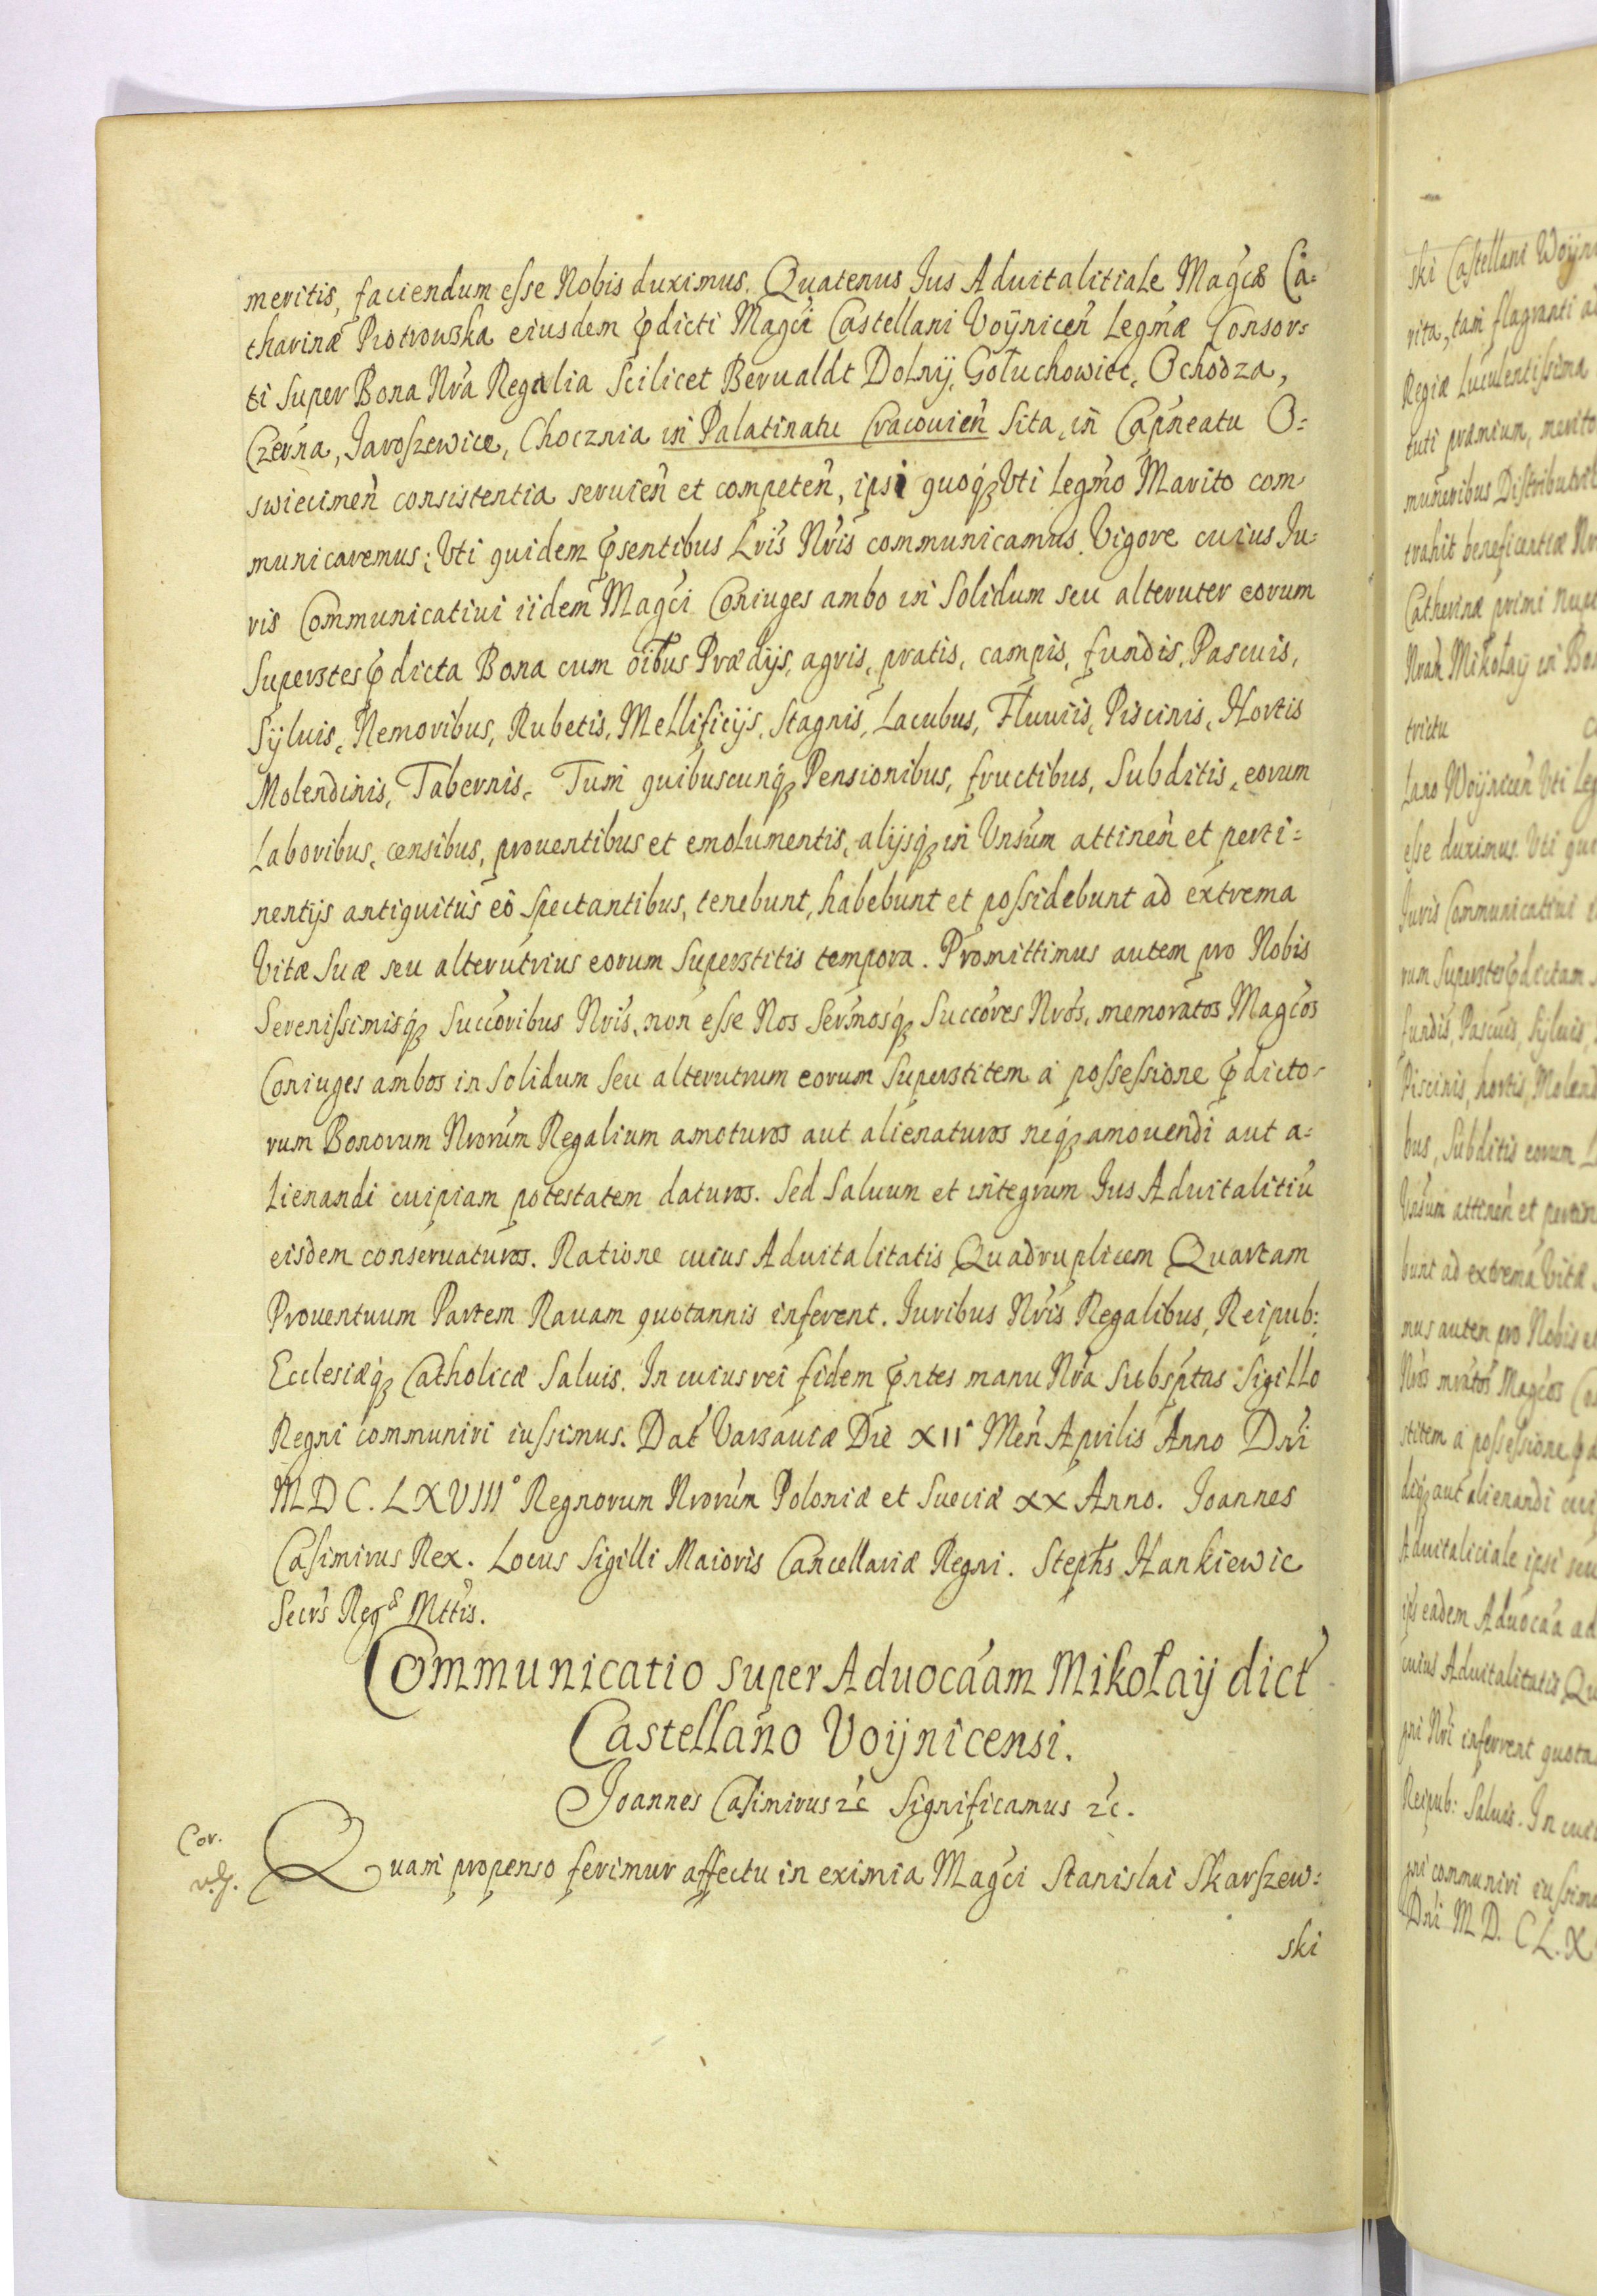 meritis, faciendum esse Nobis duximus. Quatenus Jus Aduitalitiale Magcæ Ca=
tharinæ Piotrowska eiusdem pdicti Magci Castellani Voÿnicen Legmæ Consor=
ti super Bona Nra Regalia Scilicet Berualdt Dolnij, Gołuchowiec, Ochodza,
Czerna, Jaroszewice, Chocznia in Palatinatu Cracouien sita, in Capneatu O=
swiecimen consistentia seruien et competen, ipsi quoq Uti Legmo Marito com
municaremus; Uti quidem psentibus Lris Nris communicamus. Vigore cuius Ju=
ris Communicatiui iidem Magci Coniuges ambo in solidum seu alteruter eorum
Superstes pdicta Bona cum oibus Prædijs, agris, pratis, campis, fundis, Pascuis,
Syluis, Nemoribus, Rubetis, Mellificijs, Stagnis, Lacubus, Fluuiis, Piscinis, Hortis
Molendinis, Tabernis, Tum quibuscunq Pensionibus, fructibus, Subditis, eorum
Laboribus, censibus, prouentibus et emolumentis, alijsq in Unsum attinen et perti=
nentijs antiquitus eo spectantibus, tenebunt, habebunt et possidebunt ad extrema
Vitæ suæ seu alterutrius eorum superstitis tempora. Promittimus autem pro Nobis
Serenissimisq Succoribus Nris, non esse Nos Sermosq Succores Nros, memoratos Magcos
Coniuges ambos in solidum seu alterutrum eorum superstitem a possessione pdicto
rum Bonorum Nrorum Regalium amoturos aut alienaturos neq amouendi aut a=
lienandi cuipiam potestatem daturos. Sed saluum et integrum Jus Aduitalitiu
eisdem conseruaturos. Ratione cuius Aduitalitatis Quadruplicem Quartam
Prouentuum Partem Rauam quotannis inferent. Juribus Nris Regalibus, Reipub:
Ecclesiæq Catholicæ Saluis. In cuius rei fidem pntes manu Nra subsptas Sigillo
Regni communiri iussimus. Dat Varsauiæ Die XII Men Aprilis Anno Dni
MDC. LXVIII° Regnorum Nrorum Poloniæ et Sueciæ XX Anno. Joannes
Casimirus Rex. Locus Sigilli Maioris Cancellariæ Regni. Stephs Hankiewic
Secrs Regæ Mttis.
Communicatio super Aduocaam Mikołaij dict
Castellano Voÿnicensi.
Joannes Casimirus &c Significamus &c.
Cor.
Quam propenso ferimur affectu in eximia Magci Stanislai Skarszew=
ski
ski Castellani Woÿni
rita, tam flagranti a
Regiæ luculentissima
tuti præmium, merito
muneribus Distributi
trahit beneficentiæ N
Catherinæ primi nup
Nram Mikołaÿ in Bo
trictu
lano Woÿnicen Uti Leg
esse duximus. Uti qu
Juris Communicatiui
rum superstes pdictam
fundis, Pascuis, Syluis,
Piscinis, hortis, Molend
bus, Subditis eorum L
Unsum attinen et pertin
bunt ad extrema Vitæ
mus autem pro Nobis e
Nros mratos Magcos Co
stitem a possessione pd
aut alienandi cui
Aduitaliciale ipsi seu
eadem Aduocaa ad
cuius Aduitalitatis Qu
gni Nri inferrent quota
Reipub: Saluis. In cui
gni communiri iussim
Dni M D. C L. X